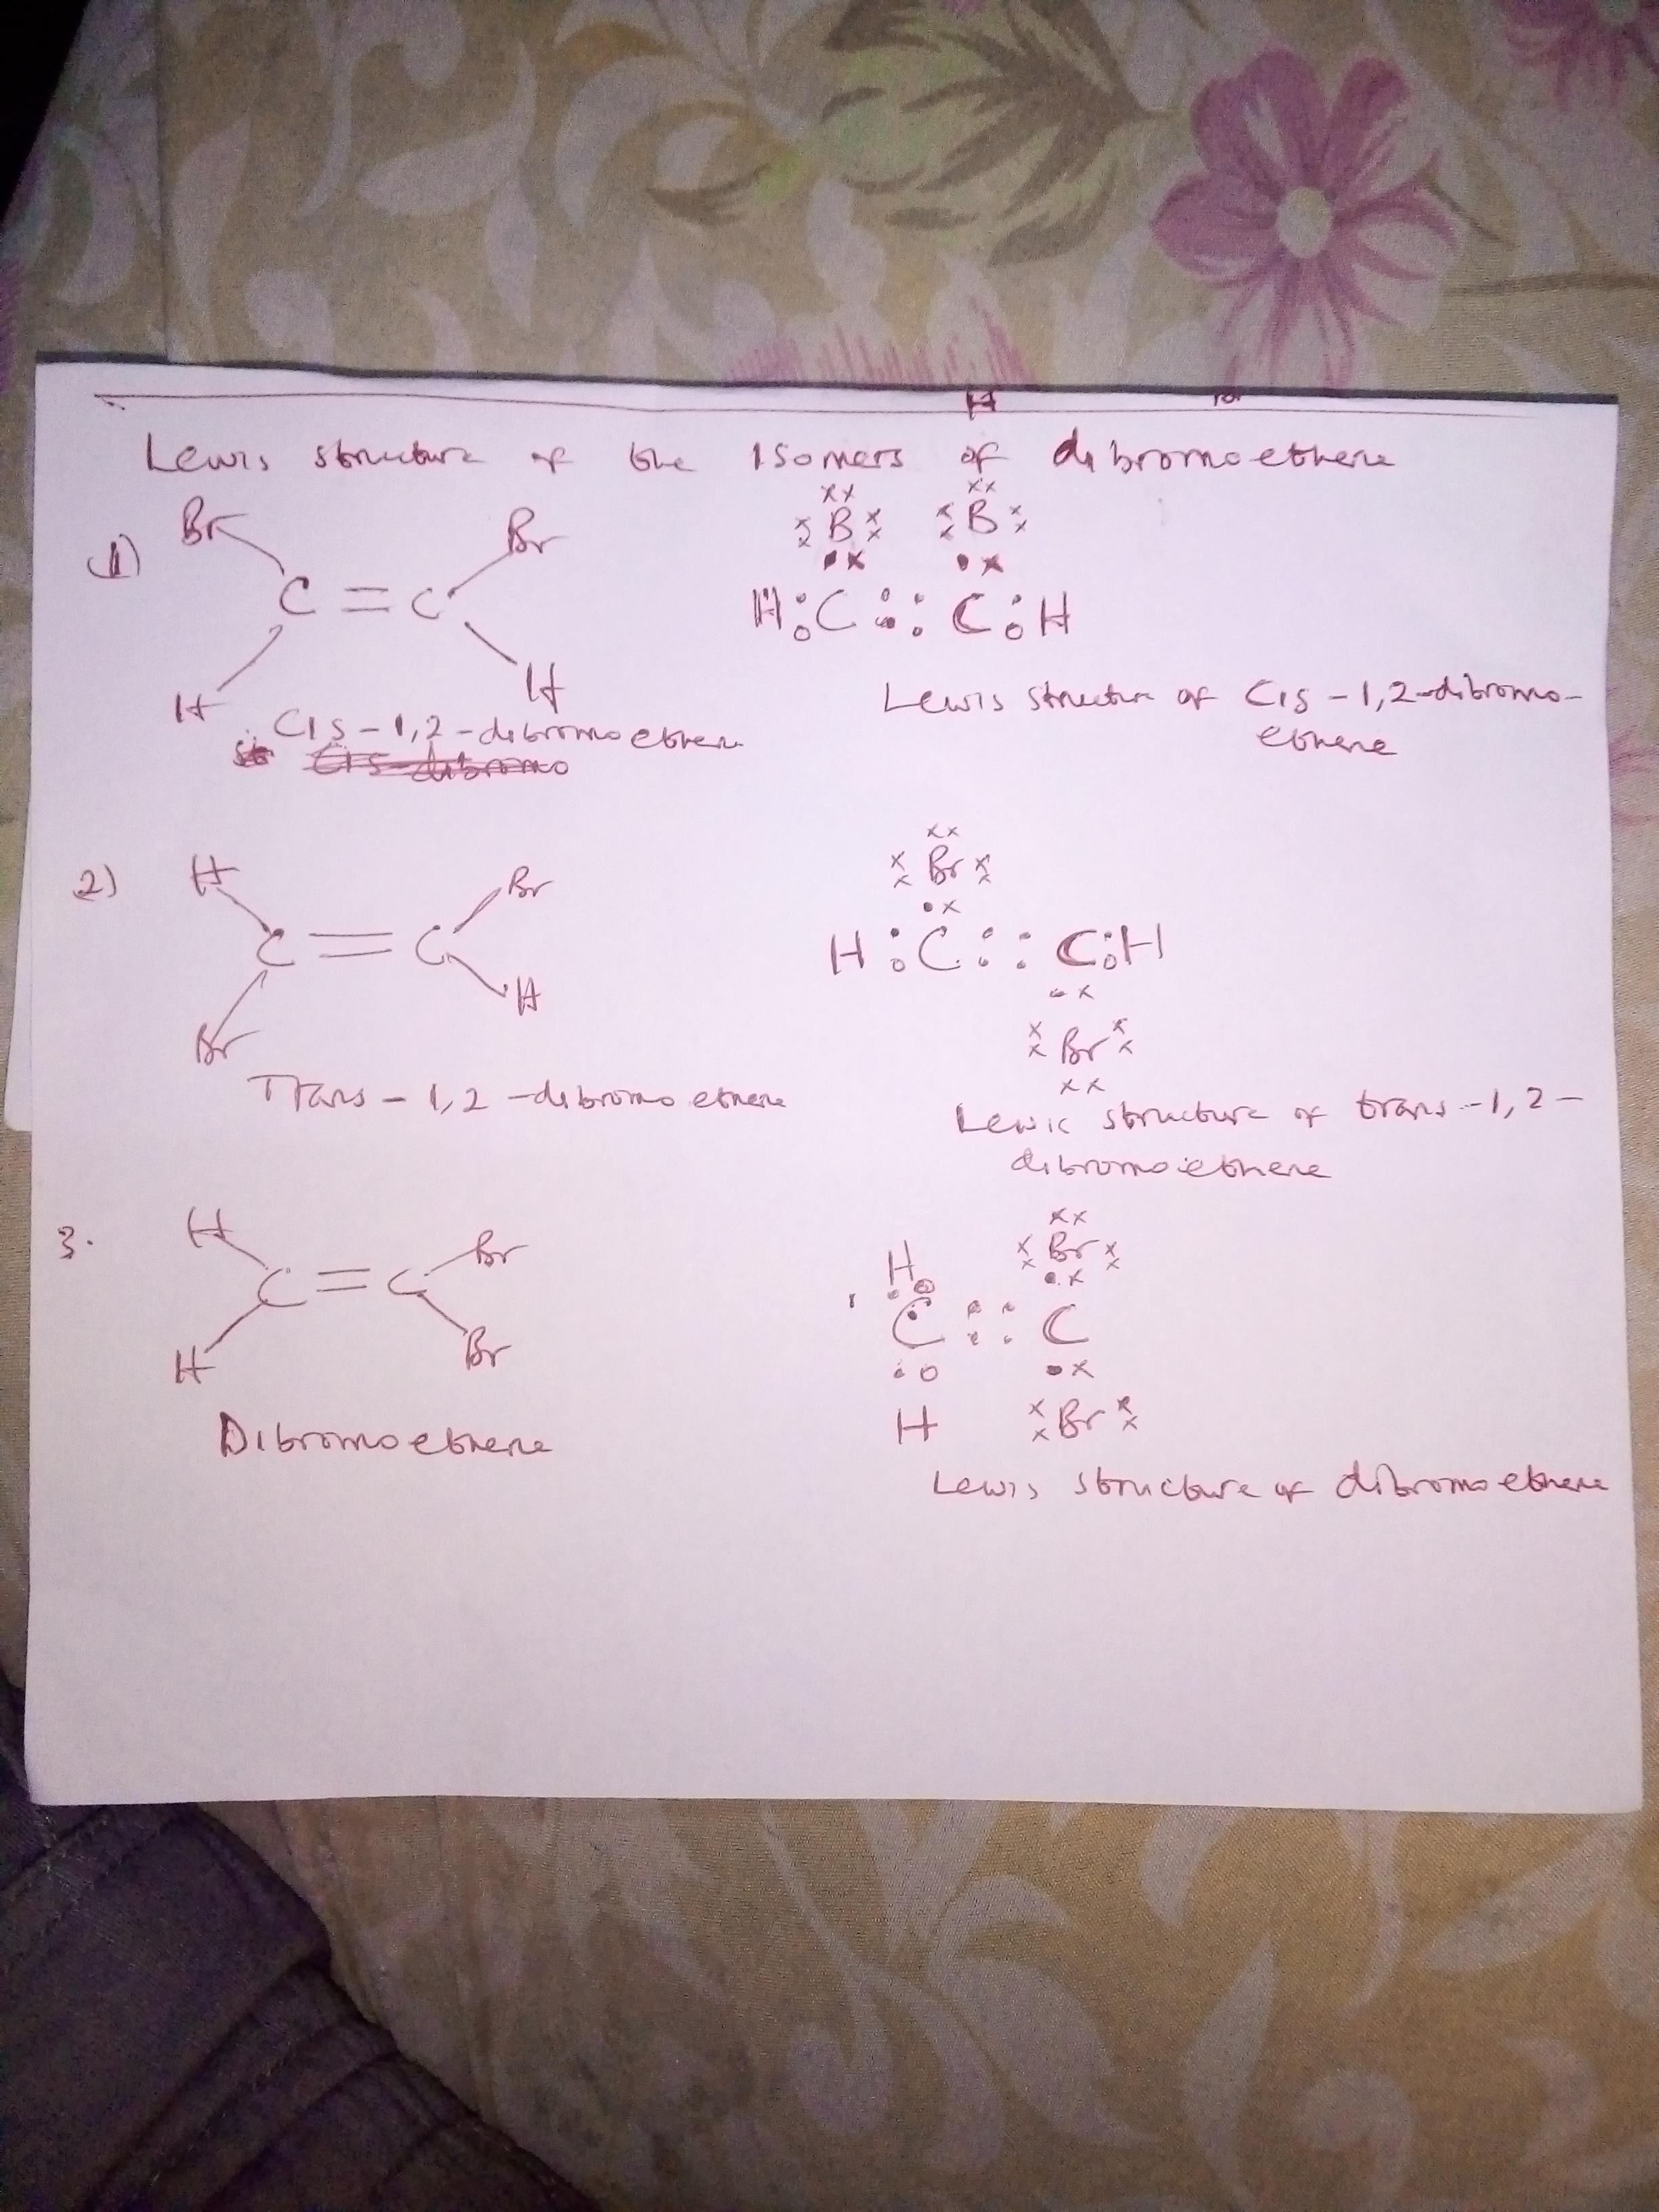 Lewis structure of the Isomers of dibromoethene
1)
Br Br
C = C
H H
Cis-1,2-dibromoethene
xx xx
B B
H C C H
Lewis structure of Cis-1,2-dibromo-
ethene
2)
H Br
C = C
Br H
Trans-1,2-dibromoethene
xx
Br
H C C H
Br
xx
Lewis structure of trans-1,2-
dibromoethene
3.
H Br
C = C
H Br
Dibromoethene
xx
H Br
C C
H Br
Lewis structure of dibromoethene